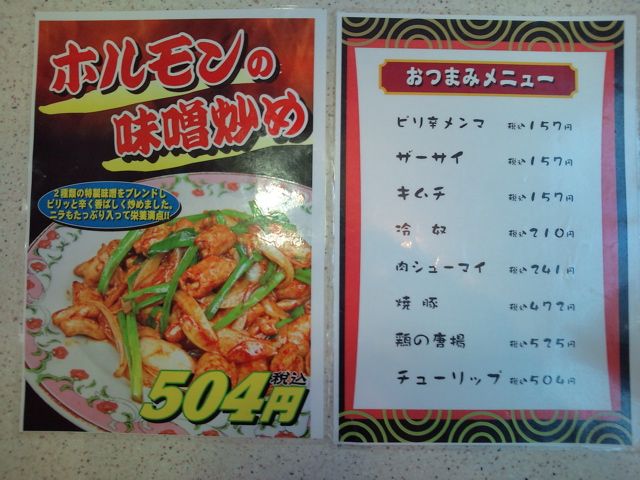 ホルモンの
味噌炒め
2種類の特製味噌をブレンドし
ピリッと辛く香ばしく炒めました。
ニラもたっぷり入って栄養満点!!
504円税込
おつまみメニュー
ピリ辛メンマ 税込157円
ザーサイ 税込157円
キムチ 税込157円
冷 奴 税込210円
肉シューマイ 税込241円
焼豚 税込472円
鶏の唐揚 税込525円
チューリップ 税込504円